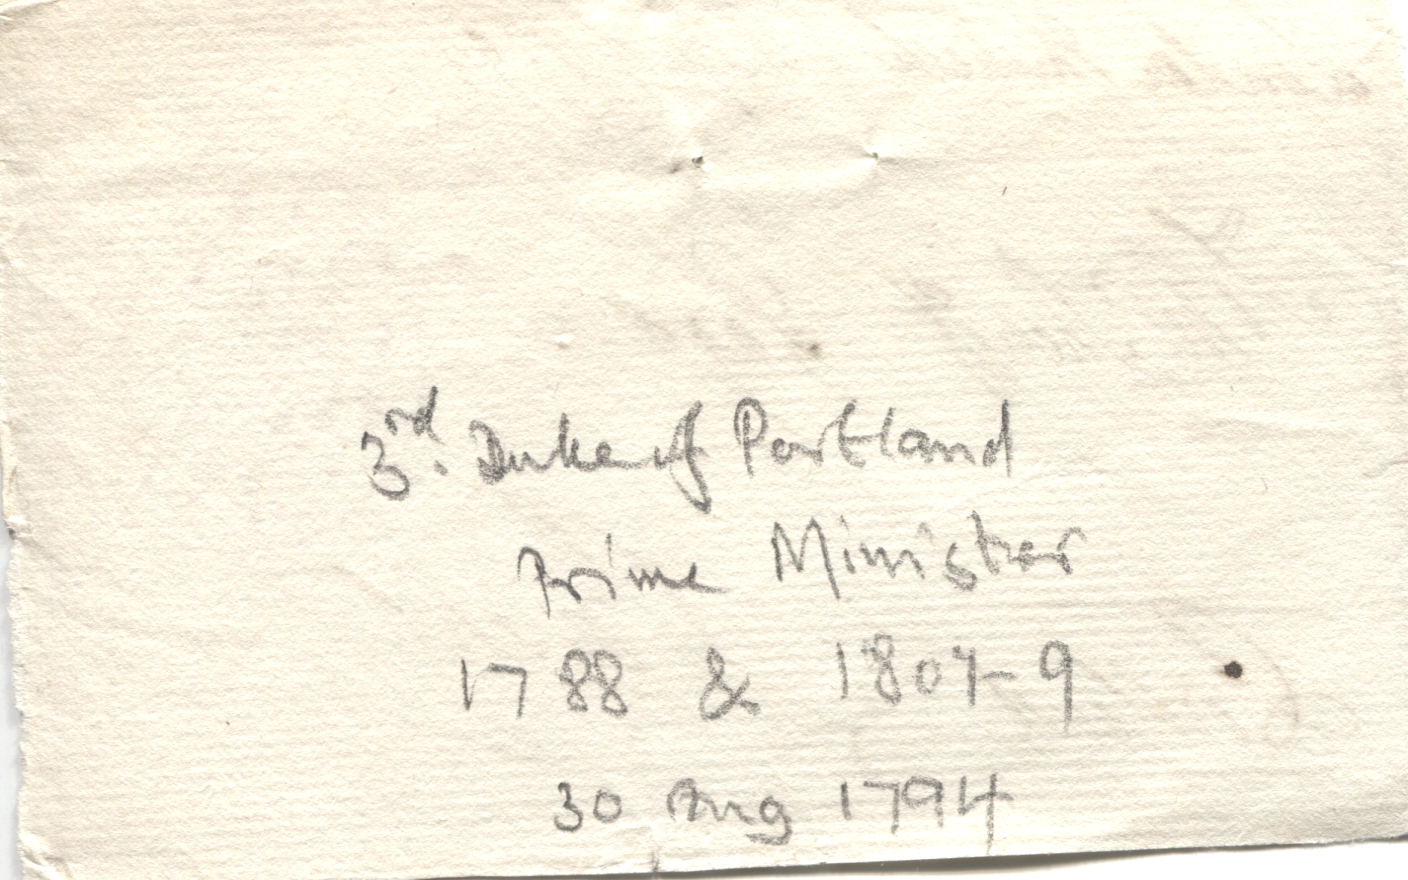 3rd. Duke of Portland
Prime Minister
1788 & 1807-9
30 Aug 1794